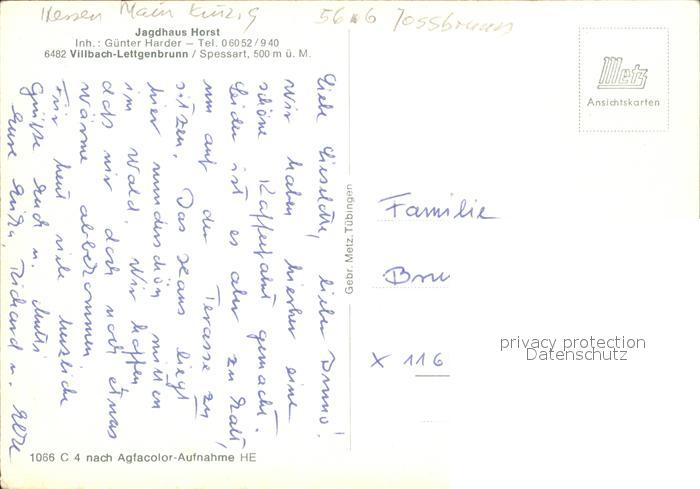 Hessen Main Kinzig
56 6 Jossbrunn
Jagdhaus Horst
Inh.: Günter Harder – Tel. 0 60 52 / 9 40
6482 Villbach-Lettgenbrunn / Spessart, 500 m ü. M.
Metz
Ansichtskarten
Liebe Lieselotte, lieber Bruno!
Wir haben hierher eine
schöne Kaffeefahrt gemacht.
Leider ist es aber zu kalt,
um auf der Terasse zu
sitzen. Das Haus liegt
hier wunderschön mitten
im Wald. Wir hoffen
daß wir doch noch etwas
Wärme abbekommen.
Für heut viele herzliche
Grüße Euch u. Mutti
Eure Erika, Richard u. Elke
Gebr. Metz, Tübingen
Familie
Bru
X 116
privacy protection
Datenschutz
1066 C 4 nach Agfacolor-Aufnahme HE